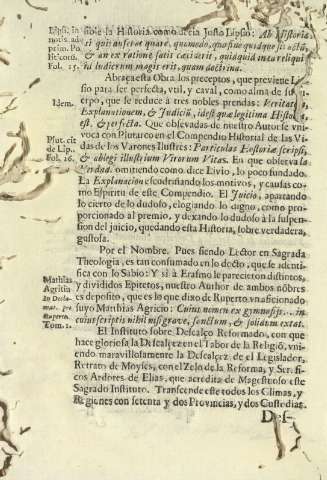 Lipsi. in
notis. adv
prim. Po
liticorũ.
Fol. 15.
sible la Historia como diria Justo Lipsio: Ab Historia
& an ex ratione fati cesserit, quid quid inta reliqui
id ludicrum magis erit, quam doctrina.
Abraça esta Obra los preceptos, que previene Li-
sio para ser perfecta, vtil, y caval, como alma de su
Idem.
erpo, que se reduce à tres nobles prendas: Veritate,
Explanationem, & Judicij, idest quæ legitima Histori
est, & perfecta. Que observadas de nuestro Autor se vni
voca con Plutarco en el Compendio Historial de las Vi
Plut. cit
de Lip.
Fol. 16.
das de los Varones Ilustres: Particulas Eostoria scripsi,
& ablegi illustrium Virorum Vitas. En que observa la
Verdad, omitiendo como dice Livio, lo poco fundado.
La Explanacion escodriñando los motivos, y causas co-
mo Espiritu de este Compendio. El Juicio, apartando
lo cierto de lo dudoso, elogiando lo digno, como pro-
porcionado al premio, y dexando lo dudoso à la suspen
sion del juicio, quedando esta Historia, sobre verdadera,
gustosa.
Por el Nombre. Pues siendo Lector en Sagrada
Theologia, es tan consumado en lo docto, que se identi-
Matthias
Agritia
in Decla-
mat. pro
Ruperto.
Tom. 1.
fica con lo Sabio: Y si à Erasmo le parecieron distintos,
y divididos Epitetos, nuestro Author de ambos nõbres
es deposito, que es lo que dixo de Ruperto vn aficionado
suyo Matthias Agricio: Cuius nomen ex gymnasijs... in
cuius scriptis nihil nisi grave, sanctum, & solidum extat.
El Instituto sobre Descalço Reformado, con que
hace gloriosa la Descalçez en el Tabor de la Religiõ, vni-
endo maravillosamente la Descalçez de el Legislador,
Retrato de Moyses, con el Zelo de la Reforma, y Sera-
ficos Ardores de Elias, que acredita de Magestuoso este
Sagrado Instituto. Transcende este todos los Climas, y
Regiones con setenta y dos Provincias, y dos Custodias.
Des-